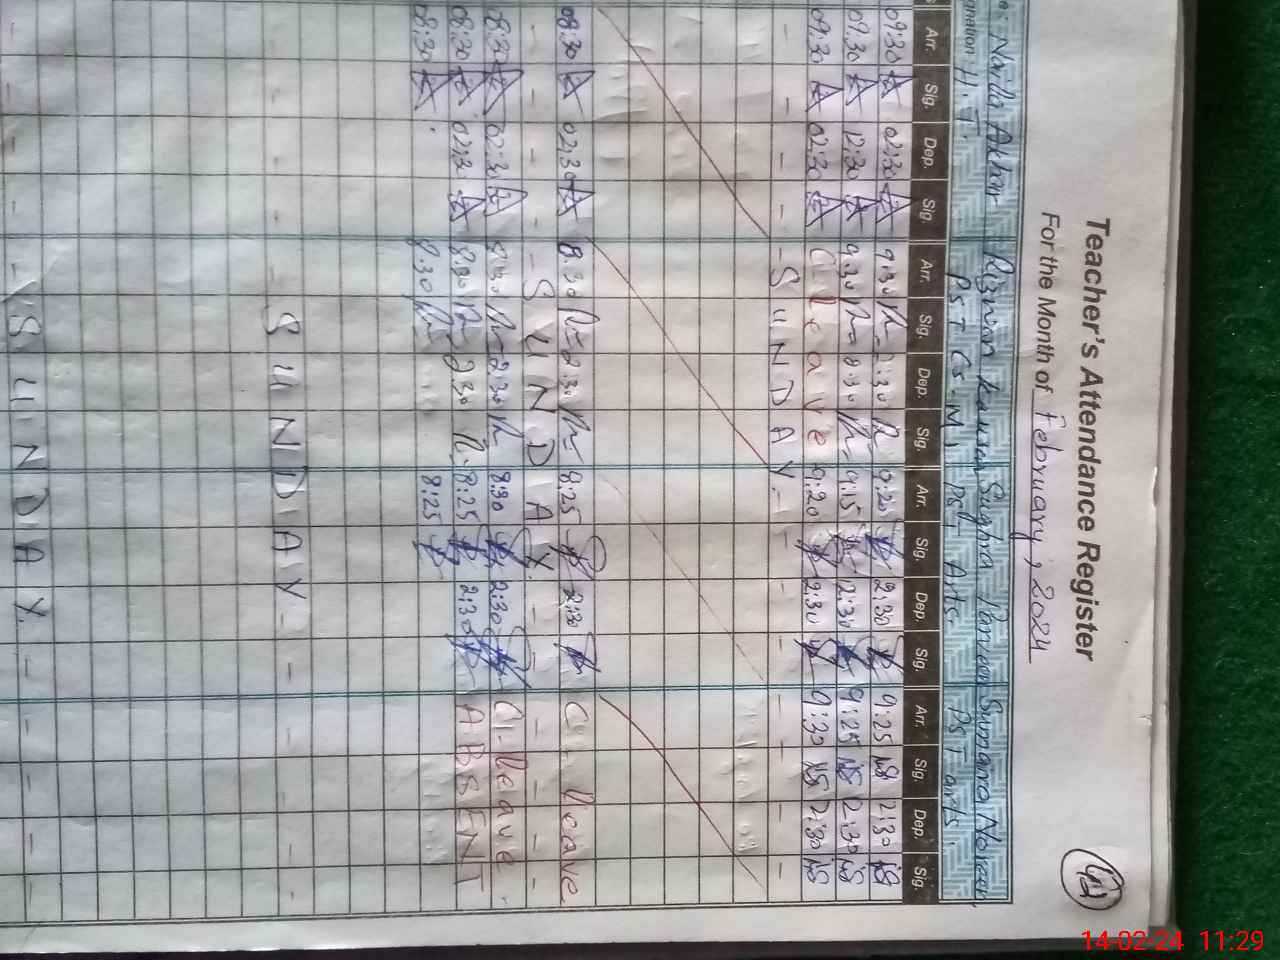 Teacher's Attendance Register
For the Month of February, 2024
42
e: Naila Akhtar Rizwan Kausar Sughra Parveen Sumaira Noreen
gnation: H.T. PST CS.M PST Arts. PST arts.
Arr. Sig. Dep. Sig. Arr. Sig. Dep. Sig. Arr. Sig. Dep. Sig. Arr. Sig. Dep. Sig.
09:30 02:30 9:30 2:30 9:20 2:30 9:25 NS 2:30 NS
09:30 12:30 9:30 9:15 12:30 9:25 NS 2:30 NS
09:30 02:30 C leave 9:20 2:30 9:30 NS 2:30 NS
- - - - - SUNDAY - - - - -
08:30 02:30 8:30 2:30 8:25 2:30 C - leave
- - - - - SUNDAY. - - - -
08:30 02:30 8:30 2:30 8:30 2:30 C1-leave.
08:30 02:30 8:30 2:30 8:25 2:30 ABSENT
08:30 8.30 8:25
- - - - - SUNDAY - - - - -
- - - - - SUNDAY. - - - - -
14-02-24 11:29